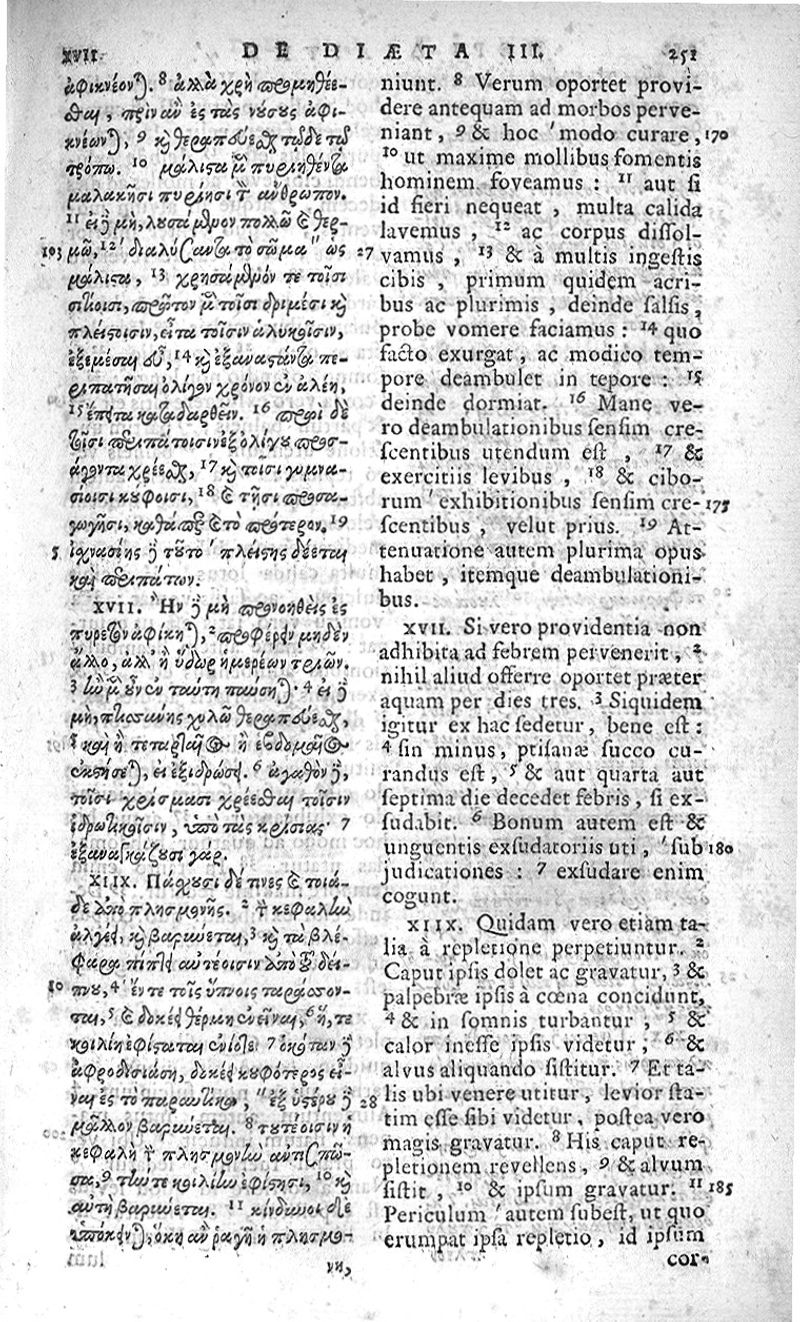 XVII. DE DIÆTA III. 251
ἀφικνέονται. 8 ἀλλὰ χρὴ προμηθέε-
σθαι, πρὶν ἂν ἐς τὰς νούσους ἀφι-
κνέωνται, 9 καὶ θεραπεύεσθαι τῷδε τῷ
τρόπῳ. 10 μάλιστα μὲν πυριηθέντα
μαλακῇσι πυρίῃσι τὸν ἄνθρωπον.
11 εἰ δὲ μὴ, λουσάμενον πολλῷ καὶ θερ-
103 μῷ, 12 ʹ διαλύσαντα τὸ σῶμα ʺ ὡς 27
μάλιστα, 13 χρησάμενόν τε τοῖσι
σιτίοισι, πρῶτον μὲν τοῖσι δριμέσι καὶ
πλείστοισιν, εἶτα τοῖσιν ἁλυκοῖσιν,
ἐξεμέσαι εὖ, 14 καὶ ἐξαναστάντα πε-
ριπατῆσαι ὀλίγον χρόνον ἐν ἀλέῃ,
15 ἔπειτα καταδαρθεῖν. 16 πρωῒ δὲ
τοῖσι περιπάτοισιν ἐξ ὀλίγου προσ-
άγοντα χρέεσθαι, 17 καὶ τοῖσι γυμνα-
σίοισι κούφοισι, 18 καὶ τῇσι προσα-
γωγῇσι, καθάπερ καὶ τὸ πρότερον. 19
5 ἰσχνασίης δὲ τοῦτο ʹ πλείστης δέεται
καὶ περιπάτων.
XVII. Ἢν δὲ μὴ προνοηθεὶς ἐς
πυρετὸν ἀφίκηται, 2 προφέρειν μηδὲν
ἄλλο, ἀλλ' ἢ ὕδωρ ἡμερέων τριῶν.
3 ἢν μὲν οὖν ἐν ταύτῃ παύσηται· 4 εἰ δὲ
μὴ, πτισάνης χυλῷ θεραπεύεσθαι,
5 καὶ ἢ τεταρταῖος ἢ ἑβδομαῖος
ἐκστήσεται, εἰ ἐξιδρώσει. 6 ἀγαθὸν δὲ,
τοῖσι χρίσμασι χρέεσθαι τοῖσιν
ἱδρωτικοῖσιν, ὑπὸ τὰς κρίσιας· 7
ἐξαναγκάζουσι γάρ.
XIIX. Πάσχουσι δέ τινες καὶ τοιά-
δε ἀπὸ πλησμονῆς. 2 τὴν κεφαλὴν
ἀλγεῖ, καὶ βαρύνεται, 3 καὶ τὰ βλέ-
φαρα πίπτει αὐτέοισιν ἀπὸ τοῦ δεί-
10 πνου, 4 ʹ ἔν τε τοῖς ὕπνοις ταράσσον-
ται, 5 καὶ δοκέει θέρμη ἐνεῖναι, 6 ἥ, τε
κοιλίη ἐφίσταται ἐνίοτε· 7 ὁκόταν δὲ
ἀφροδισιάσῃ, δοκέει κουφότερος εἶ-
ναι ἐς τὸ παραυτίκα, ʺ ἐξ ὑστέρου δὲ 28
μᾶλλον βαρύνεται. 8 τουτέοισιν ἡ
κεφαλὴ τὴν πλησμονὴν ἀντισπῶ-
σα, 9 τήν τε κοιλίην ἐφίστησι, 10 καὶ
αὐτὴ βαρύνεται. 11 κίνδυνοι δὲ
ὑπόκεινται, ὅκη ἂν ῥαγῇ ἡ πλησμο-
νὴ,
niunt. 8 Verum oportet provi-
dere antequam ad morbos perve-
niant, 9 & hoc ʹ modo curare, 170
10 ut maxime mollibus fomentis
hominem foveamus : 11 aut si
id fieri nequeat, multa calida
lavemus, 12 ac corpus dissol-
vamus, 13 & à multis ingestis
cibis, primum quidem acri-
bus ac plurimis, deinde salsis,
probe vomere faciamus : 14 quo
facto exurgat, ac modico tem-
pore deambulet in tepore : 15
deinde dormiat. 16 Mane ve-
ro deambulationibus sensim cre-
scentibus utendum est, 17 &
exercitiis levibus, 18 & cibo-
rum ʹ exhibitionibus sensim cre- 175
scentibus, velut prius. 19 At-
tenuatione autem plurima opus
habet, itemque deambulationi-
bus.
XVII. Si vero providentia non
adhibita ad febrem pervenerit, 2
nihil aliud offerre oportet præter
aquam per dies tres. 3 Siquidem
igitur ex hac sedetur, bene est :
4 sin minus, ptisanæ succo cu-
randus est, 5 & aut quarta aut
septima die decedet febris, si ex-
sudabit. 6 Bonum autem est &
unguentis exsudatoriis uti, ʹ sub 180
judicationes : 7 exsudare enim
cogunt.
XIIX. Quidam vero etiam ta-
lia à repletione perpetiuntur. 2
Caput ipsis dolet ac gravatur, 3 &
palpebræ ipsis à cœna concidunt,
4 & in somnis turbantur, 5 &
calor inesse ipsis videtur ; 6 &
alvus aliquando sistitur. 7 Et ta-
lis ubi venere utitur, levior sta-
tim esse sibi videtur, postea vero
magis gravatur. 8 His caput re-
pletionem revellens, 9 & alvum
sistit, 10 & ipsum gravatur. 11 185
Periculum ʹ autem subest, ut quo
erumpat ipsa repletio, id ipsum
cor-